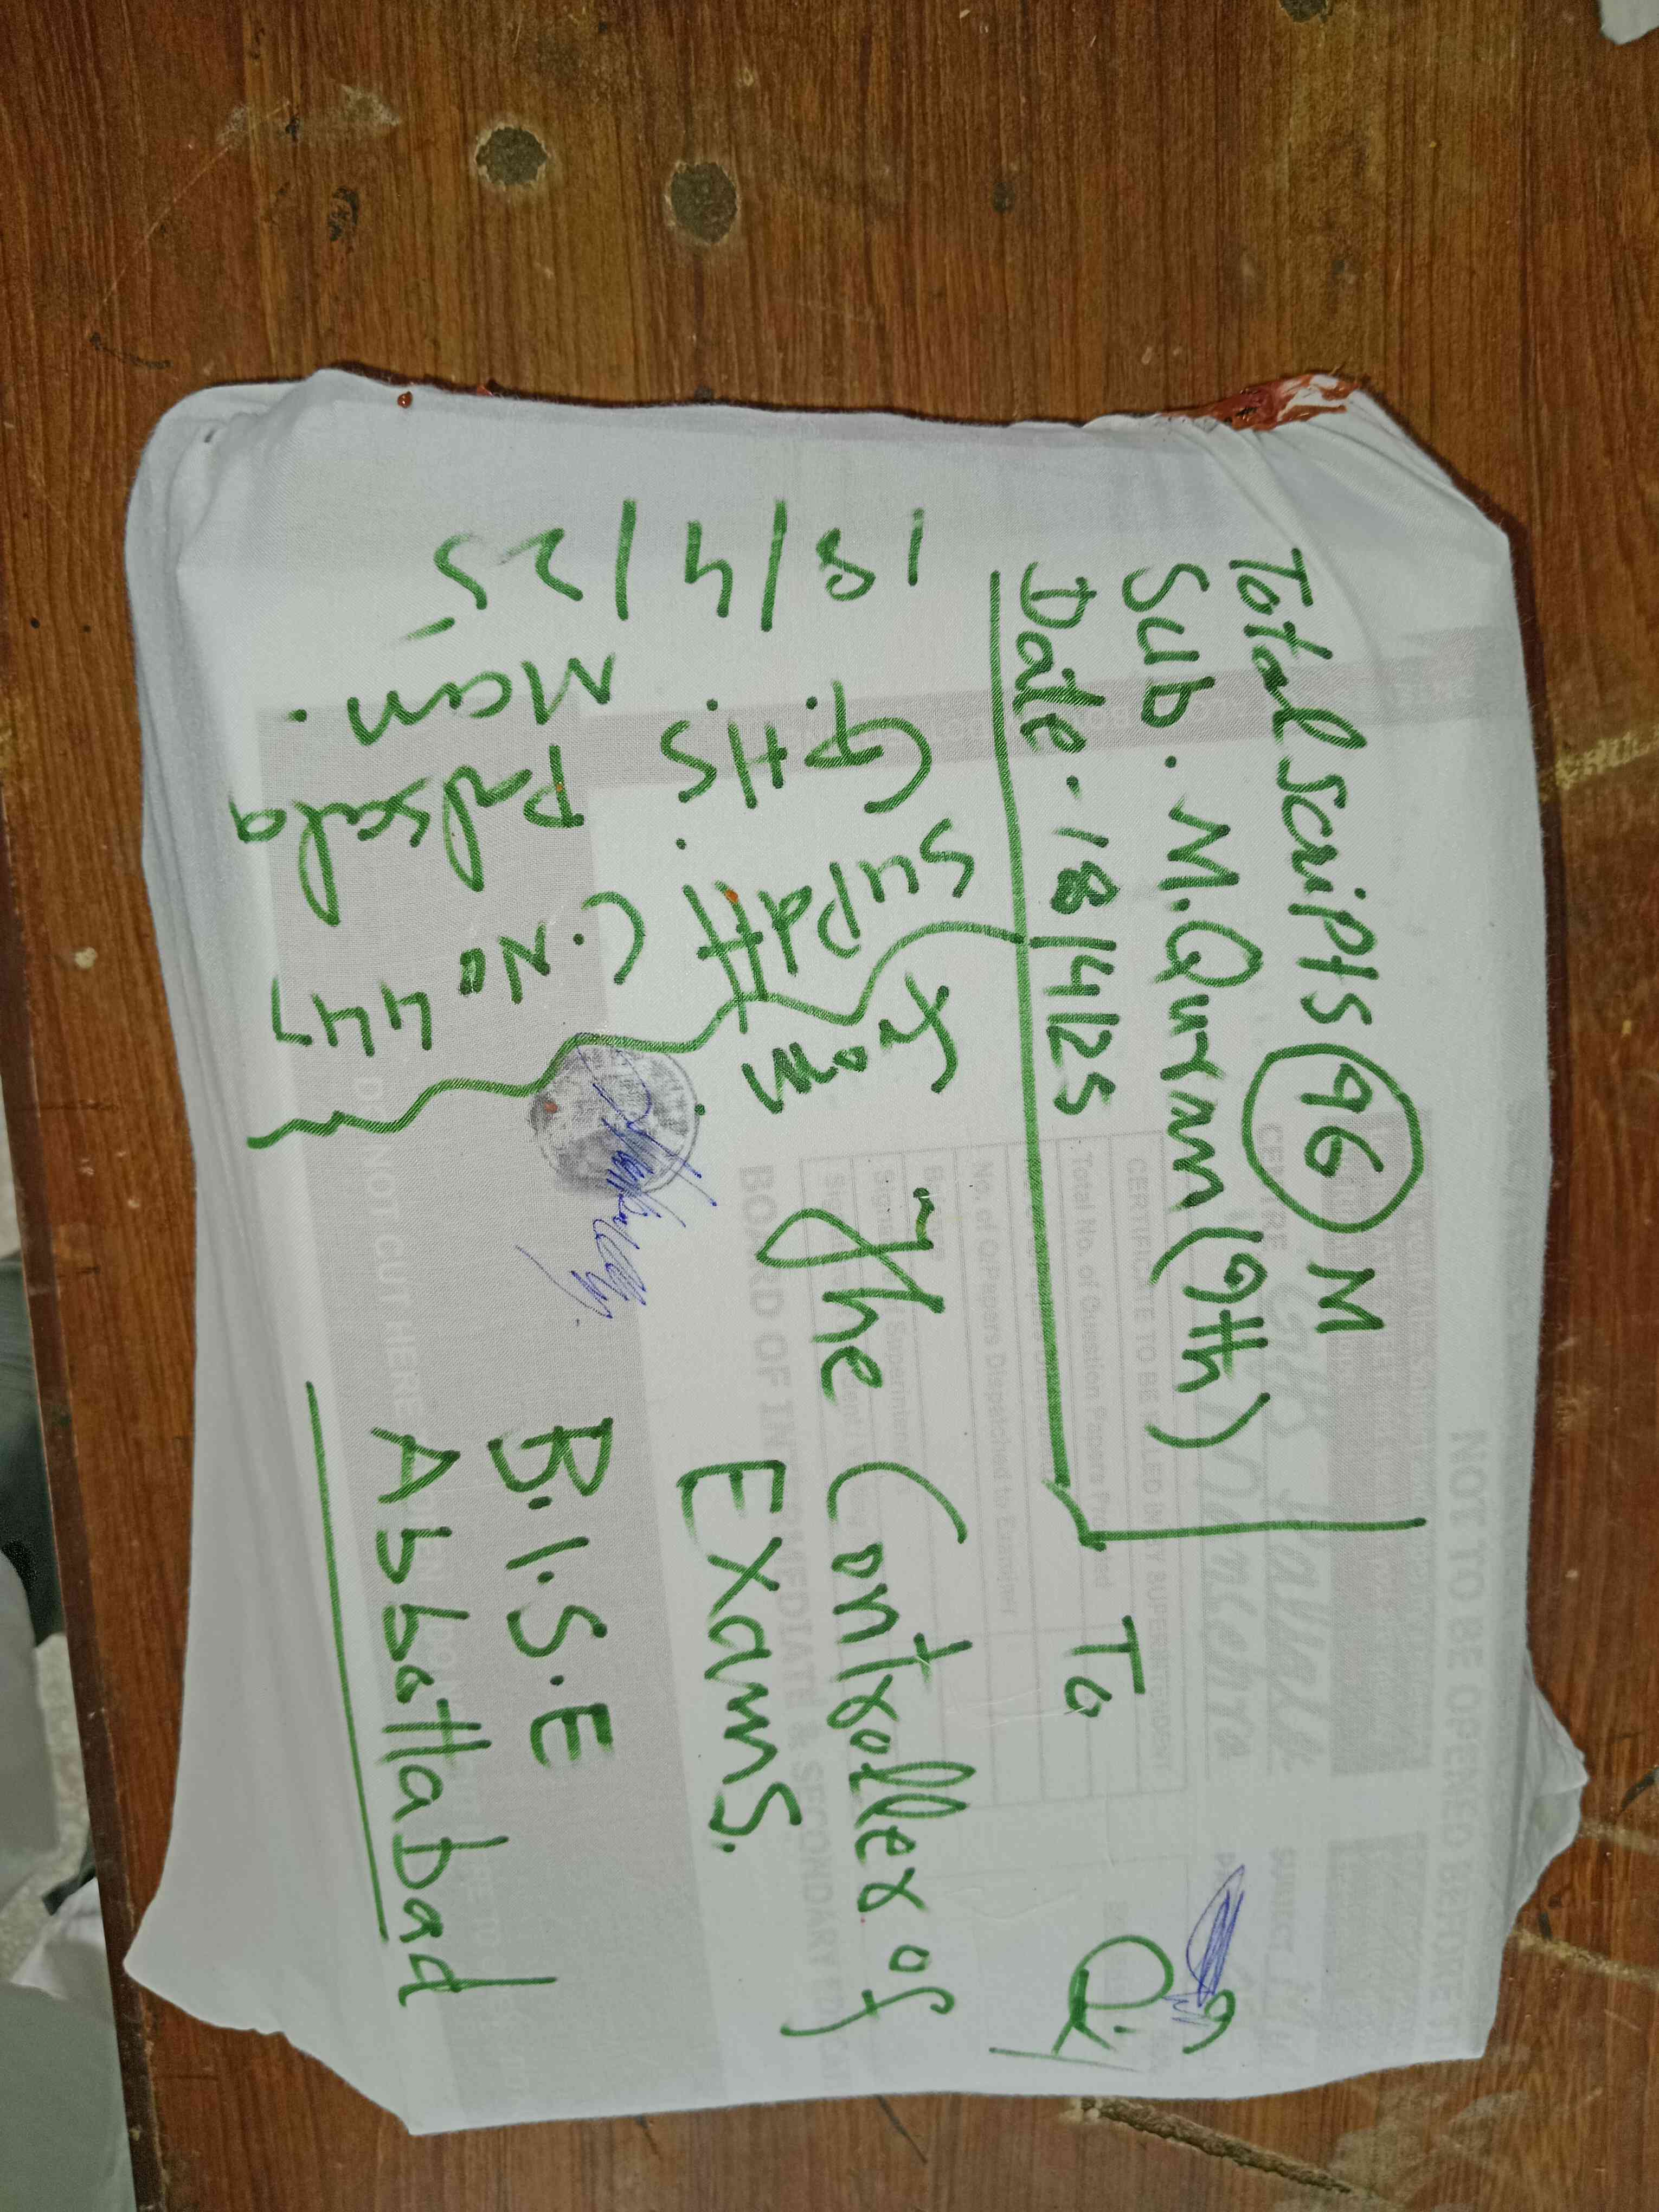 Total Scripts 96 M
Sub. M.Quran (9th)
Date. 18/4/25
To
The Controller of
Exams.
B.I.S.E
Abbottabad
From
Supdtt
G.H.S.
C.No 447
Palsala
Man.
18/4/25
NOT TO BE OPENED BEFORE
CENTRE
CERTIFICATE TO BE FILLED IN BY SUPERINTENDENT
No. of Question Papers
No. of Q/Papers Dispatched to Examiner
Superintendent
BOARD OF INTERMEDIATE & SECONDARY
CUT HERE
SUBJECT